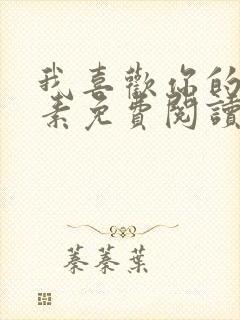 我喜歡你的
素免費閱讀
蓁蓁葉